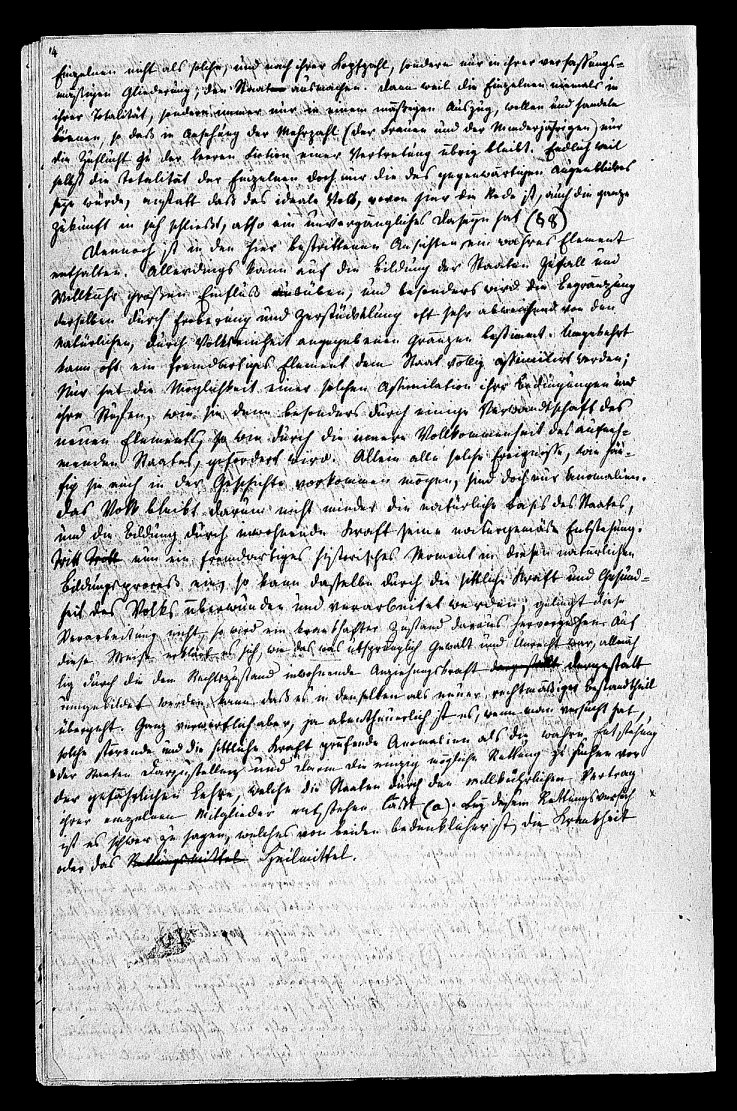 4
Einzelnen nicht als solche, und nach ihrer Kopfzahl, sondern nur in ihrer verfassungs-
mäßigen Gliederung, den Staat ausmachen. Dann weil die Einzelnen niemals in
ihrer Totalität, sondern immer nur in einem mäßigen Auszug, wollen und handeln
können, so daß in Ansehung der Mehrzahl (der Frauen und der Minderjährigen) nur
die Zuflucht zu der leeren Fiction einer Vertretung übrig bleibt. Endlich weil
selbst die Totalität der Einzelnen doch nur die des gegenwärtigen Augenblickes
seyn würde, anstatt daß das ideale Volk, wovon hier die Rede ist, auch die ganze
Zukunft in sich schließt, also ein unvergängliches Daseyn hat (§ 8)
Dennoch ist in den hier bestrittenen Ansichten ein wahres Element
enthalten. Allerdings kann auf die Bildung der Staaten Zufall und
Willkühr großen Einfluß ausüben, und besonders wird die Begränzung
derselben durch Eroberung und Zerstückelung oft sehr abweichend von den
natürlichen, durch Volkseinheit angegebenen Gränzen bestimmt. Umgekehrt
kann oft ein fremdartiges Element dem Staat völlig assimilirt werden;
Nur hat die Möglichkeit einer solchen Assimilation ihre Bedingungen und
ihre Stufen, wie sie denn besonders durch einige Verwandtschaft des
neuen Elements, so wie durch die innere Vollkommenheit des aufneh-
menden Staates, gefördert wird. Allein alle solche Ereignisse, wie häu-
fig sie auch in der Geschichte vorkommen mögen, sind doch nur Anomalien.
Das Volk bleibt darum nicht minder die natürliche Basis des Staates,
und die Bildung durch inwohnende Kraft seine naturgemäße Entstehung.
Tritt nun ein fremdartiges historisches Moment in diesen natürlichen
Bildungsproceß ein, so kann dasselbe durch die sittliche Kraft und Gesund-
heit des Volks überwunden und verarbeitet werden; gelingt diese
Verarbeitung nicht, so wird ein krankhafter Zustand daraus hervorgehen. Auf
diese Weise erklärt es sich, wie das was ursprünglich Gewalt und Unrecht war, allmäh
lig durch die dem Rechtszustand inwohnende Anziehungskraft dergestalt dergestalt
umgebildet werden kann, daß es in denselben als neuer, rechtmäßiger Bestandtheil
übergeht. Ganz verwerflich aber, ja abentheuerlich ist es, wenn man versucht hat,
solche störende und die sittliche Kraft prüfende Anomalien als die wahre Entstehung
der Staaten darzustellen, und darin die einzig mögliche Rettung zu suchen vor
der gefährlichen Lehre, welche die Staaten durch den willkührlichen Vertrag
ihrer einzelnen Mitglieder entstehen läßt (a). Bey diesem Rettungsversuch
ist es schwer zu sagen, welches von beiden bedenklicher ist, die Krankheit
oder das Rettungsmittel Heilmittel.